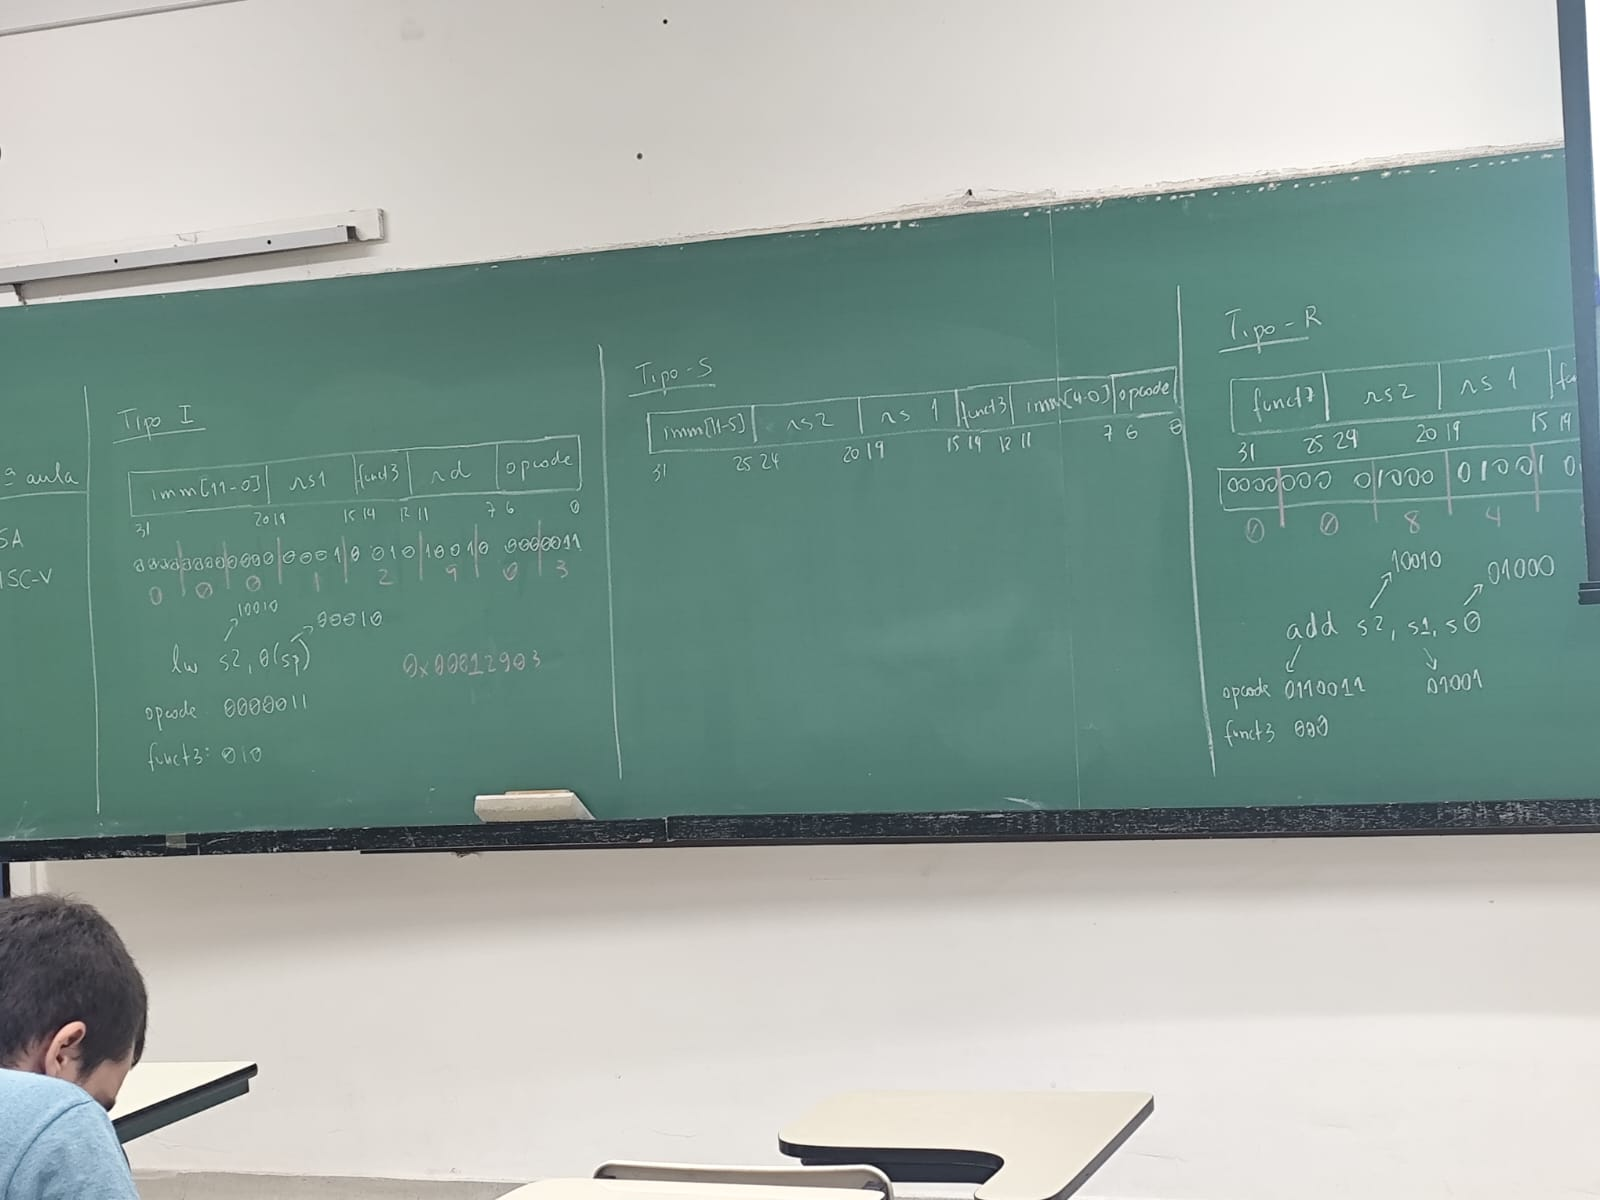 ª aula
SA
ISC-V
Tipo I
imm[11-0] rs1 funct3 rd opcode
31 20 19 15 14 12 11 7 6 0
000000000000 00010 010 10010 0000011
0 0 0 1 2 9 0 3
10010
00010
lw s2, 0(sp)
0x00012903
opcode 0000011
funct3: 010
Tipo-S
imm[11-5] rs2 rs 1 funct3 imm[4-0] opcode
31 25 24 20 19 15 14 12 11 7 6 0
Tipo-R
funct7 rs2 rs 1 fu
31 25 24 20 19 15 14
0000000 01000 01001 0
0 0 8 4
10010
01000
add s2, s1, s0
opcode 0110011 01001
funct3 000